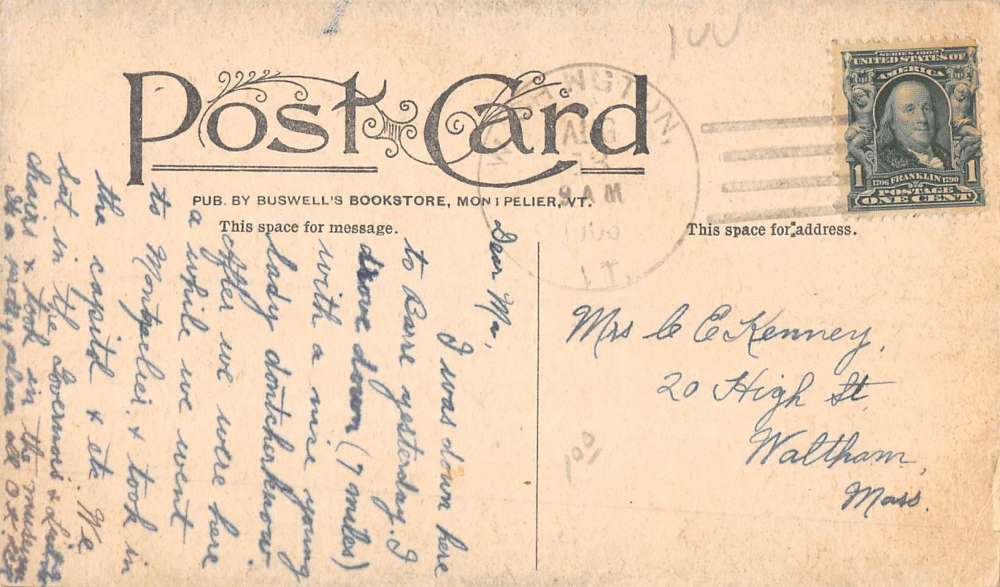 Post Card
PUB. BY BUSWELL'S BOOKSTORE, MONTPELIER, VT.
This space for message.
This space for address.
SERIES 1902
UNITED STATES OF
AMERICA
1
1
1706 FRANKLIN 1790
POSTAGE
ONE CENT
NGTON,
AUG
8 AM
VT.
100
Dear Ma,
I was down here
to Barre yesterday. I
drove down (7 miles)
with a nice young
lady dontcherknow.
After we were here
a while we went
to Montpelier. & took in
the capitol & etc. We
sat in the Governor's &
chairs & took in the museum
It a pretty place all O.K.
Mrs C E Kenney,
20 High St
Waltham,
Mass.
100